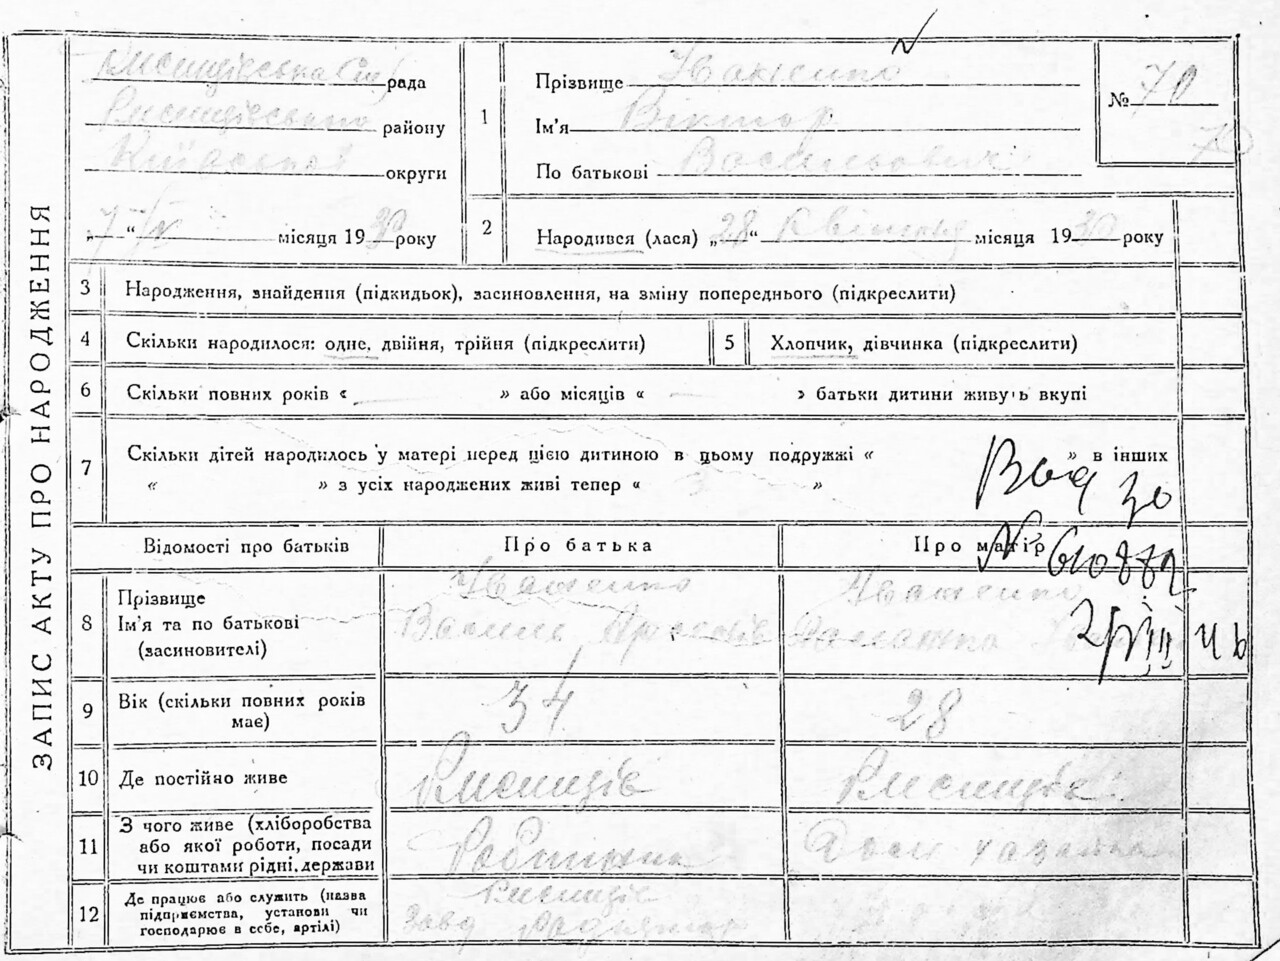 ЗАПИС АКТУ ПРО НАРОДЖЕННЯ
рада
району
округи
„7“ місяця 1930 року
1
Прізвище
Ім'я Віктор
По батькові Васильович
№ 70
70
2
Народився (лася) „28“ Квітня місяця 1930 року
3
Народження, знайдення (підкидьок), засиновлення, на зміну попереднього (підкреслити)
4
Скільки народилося: одне, двійня, трійня (підкреслити)
5
Хлопчик, дівчинка (підкреслити)
6
Скільки повних років « » або місяців « » батьки дитини живуть вкупі
7
Скільки дітей народилось у матері перед цією дитиною в цьому подружжі « » в інших
« » з усіх народжених живі тепер « 3 »
Відомості про батьків
Про батька
Про матір
№ 610882
8
Прізвище
Ім'я та по батькові
(засиновителі)
Василь
9
Вік (скільки повних років
має)
34
28
10
Де постійно живе
11
З чого живе (хліборобства
або якої роботи, посади
чи коштами рідні, держави
Робітник
Дом хазяйка
12
Де працює або служить (назва
підприємства, установи чи
господарює в себе, артілі)
Завод Радіятор